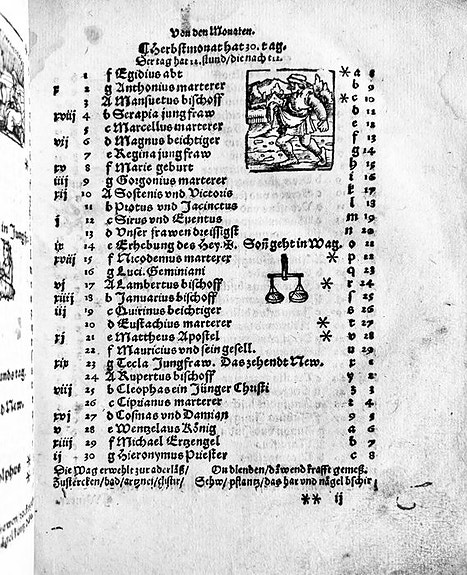 Von den Monaten.
Herbstmonat hat 30. tag.
Der tag hat 14. stund/die nacht 12.
1 f Egidius abt * a 8
x 2 g Anthonius marterer b 9
3 A Mansuetus bischoff * c 10
xviij 4 b Serapia jungfraw d 11
5 c Marcellus marterer e 12
vij 6 d Magnus beichtiger f 13
7 e Regina jungfraw g 14
xv 8 f Marie geburt h 15
iiij 9 g Gorgonius marterer i 16
xij 10 A Sostenis vnd Victoris k 17
11 b Protus vnd Jacinctus l 18
j 12 c Sirus vnd Euentus m 19
13 d Vnser frawen dreissigst n 20
ix 14 e Erhebung des Hey. ✠. Soñ geht in Wag. o 21
xvij 15 f Nicodemus marterer * p 22
16 g Luci. Geminiani q 23
vj 17 A Lambertus bischoff * r 24
xiiij 18 b Januarius bischoff s 25
iij 19 c Quirinus beichtiger s 26
20 d Eustachius marterer * t 27
xj 21 e Mattheus Apostel * v 28
22 f Mauricius vnd sein gesell. u 29
xix 23 g Tecla Jungfraw. Das zehendt New. x 1
24 A Rupertus bischoff y 2
viij 25 b Cleophas ein Jünger Christi z 3
26 c Ciprianus marterer 4
xvj 27 d Cosmas vnd Damian 9 5
28 e Wentzelaus König a 6
xiiij 29 f Michael Ertzengel b 7
ij 30 g Hieronymus Priester c 8
Die Wag erwehle zur aderläß/ On blenden/däwend krafft gemeß.
Zustercken/bad/artznei/ / das har vnd nägel bschir
** ij